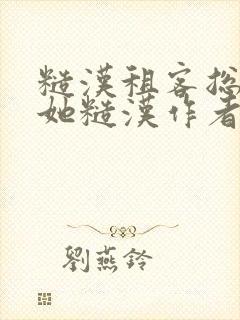 糙漢租客總
她糙漢作者
劉燕鈴